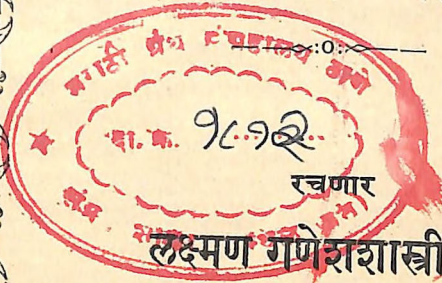 —:0:—
मराठी ग्रंथ संग्रहालय ठाणे
दा. क्र. १८१२
रचणार
लक्ष्मण गणेशशास्त्री